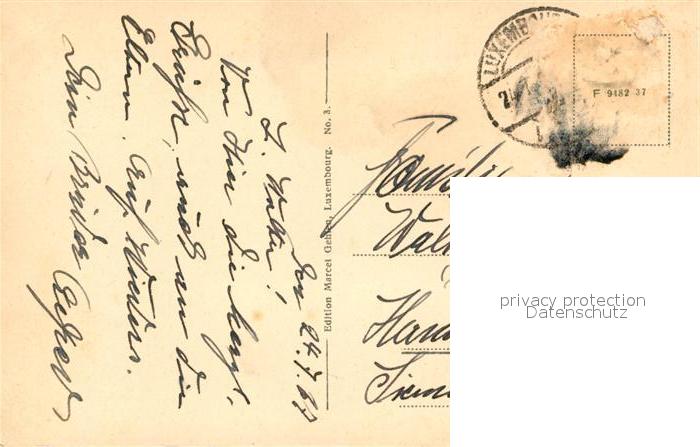 den 24.7.
L. Walter!
Von hier die herzl.
Grüße, und an die
Eltern. Auf Wieders.
Dein Bruder
Edition Marcel Gehlen, Luxembourg. No. 3.
LUXEMBOU
F 9482 37
Familie
Wal
privacy protection
Datenschutz